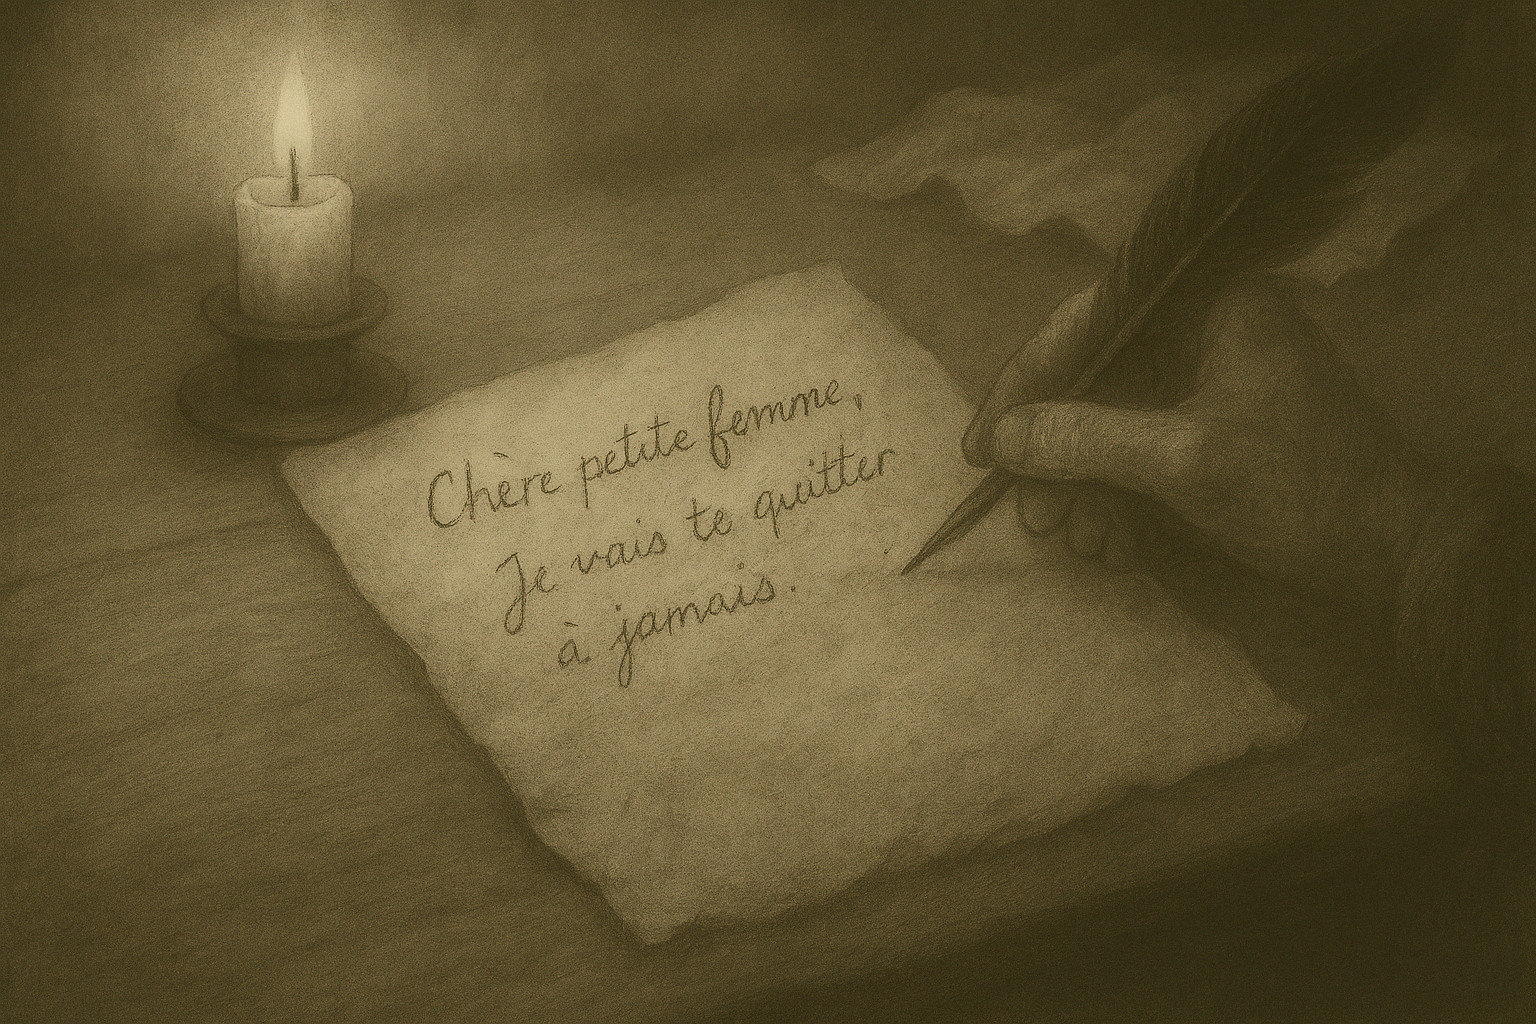 Chère petite femme,
Je vais te quitter
à jamais.